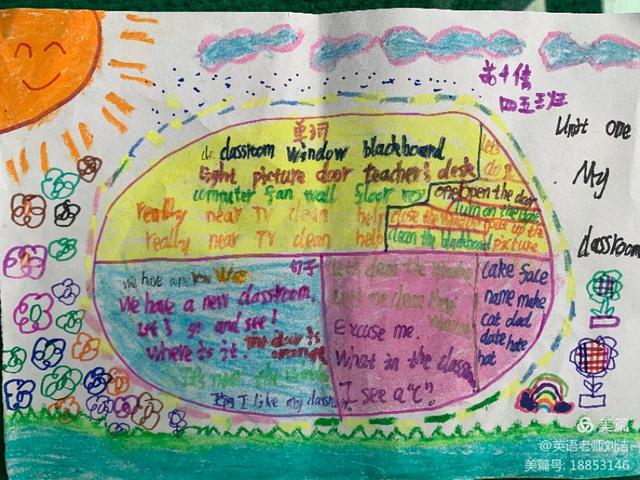 Unit one
My
classroom
单词
classroom window blackboard
light picture door teacher's desk
computer fan wall floor
really near TV clean help
really near TV clean help
let's
do
open the door
turn on the
close the window
put up the
clean the blackboard
picture
句子
we have
We
We have a new classroom.
Let's go and see!
Where is it.
the door is
orange
I like my classroom
Let's clean the
Let me clean
Excuse me.
What in the classroom
I see a
cake face
name make
cat dad
date hate
hat
美篇
@英语老师刘洁
美篇号: 18853146